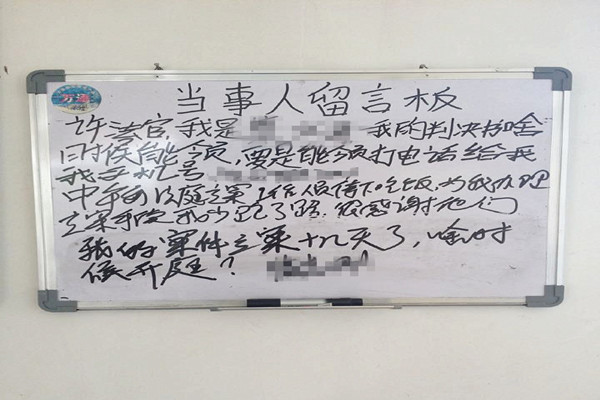 当事人留言板
许法官,我是 我的判决书啥
时候能领,要是能领打电话给我
我手机号
中午有 法庭立案工作人员停下吃饭,为我办理
立案手续 我少跑了路,很感谢他们
我的案件立案十几天了,啥时
候开庭?